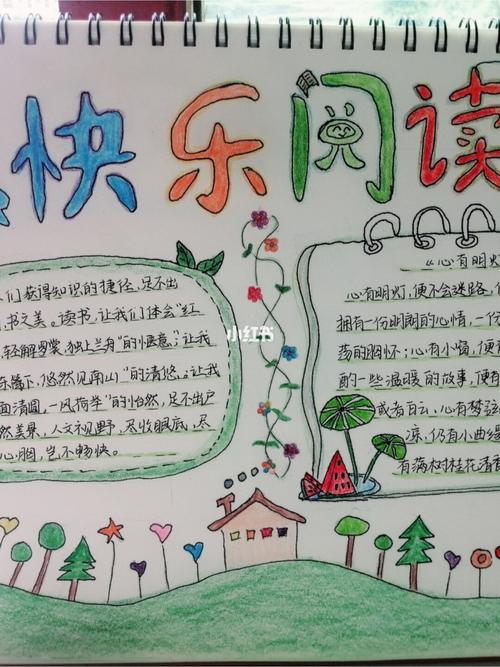 快乐阅读
们获得知识的捷径,足不出
书之美。读书,让我们体会“红
轻解罗裳,独上兰舟”的惬意;让我
东篱下,悠然见南山”的清悠。;让我
面清圆,一风荷举”的怡然,足不出户
然美景,人文视野,尽收眼底,尽
心胸,岂不畅快。
小红书
《心有明灯
心有明灯,便不会迷路,
拥有一份明朗的心情,一份
荡的胸怀;心有小窗,便
的一些温暖的故事,便有
或者白云,心有梦
凉,仍有小曲
有满树桂花清香
小红书